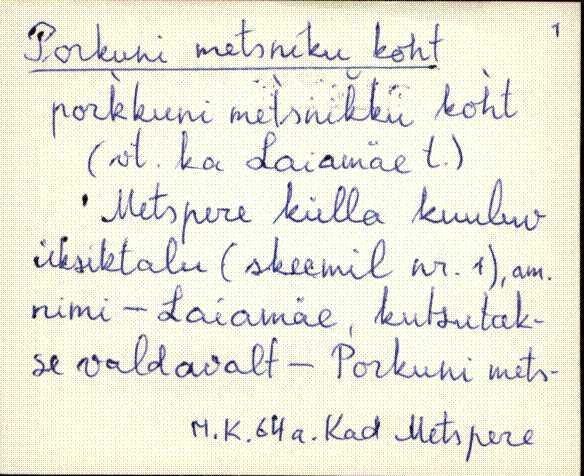 1
Porkuni metsniku koht
porkkuni mètsnikkü kòht
(vt. ka Laiamäe t.)
Metspere külla kuuluv
üksiktalu (skeemil nr. 1), am.
nimi – Laiamäe, kutsutak-
se valdavalt – Porkuni mets-
M.K. 64 a. Kad Metspere